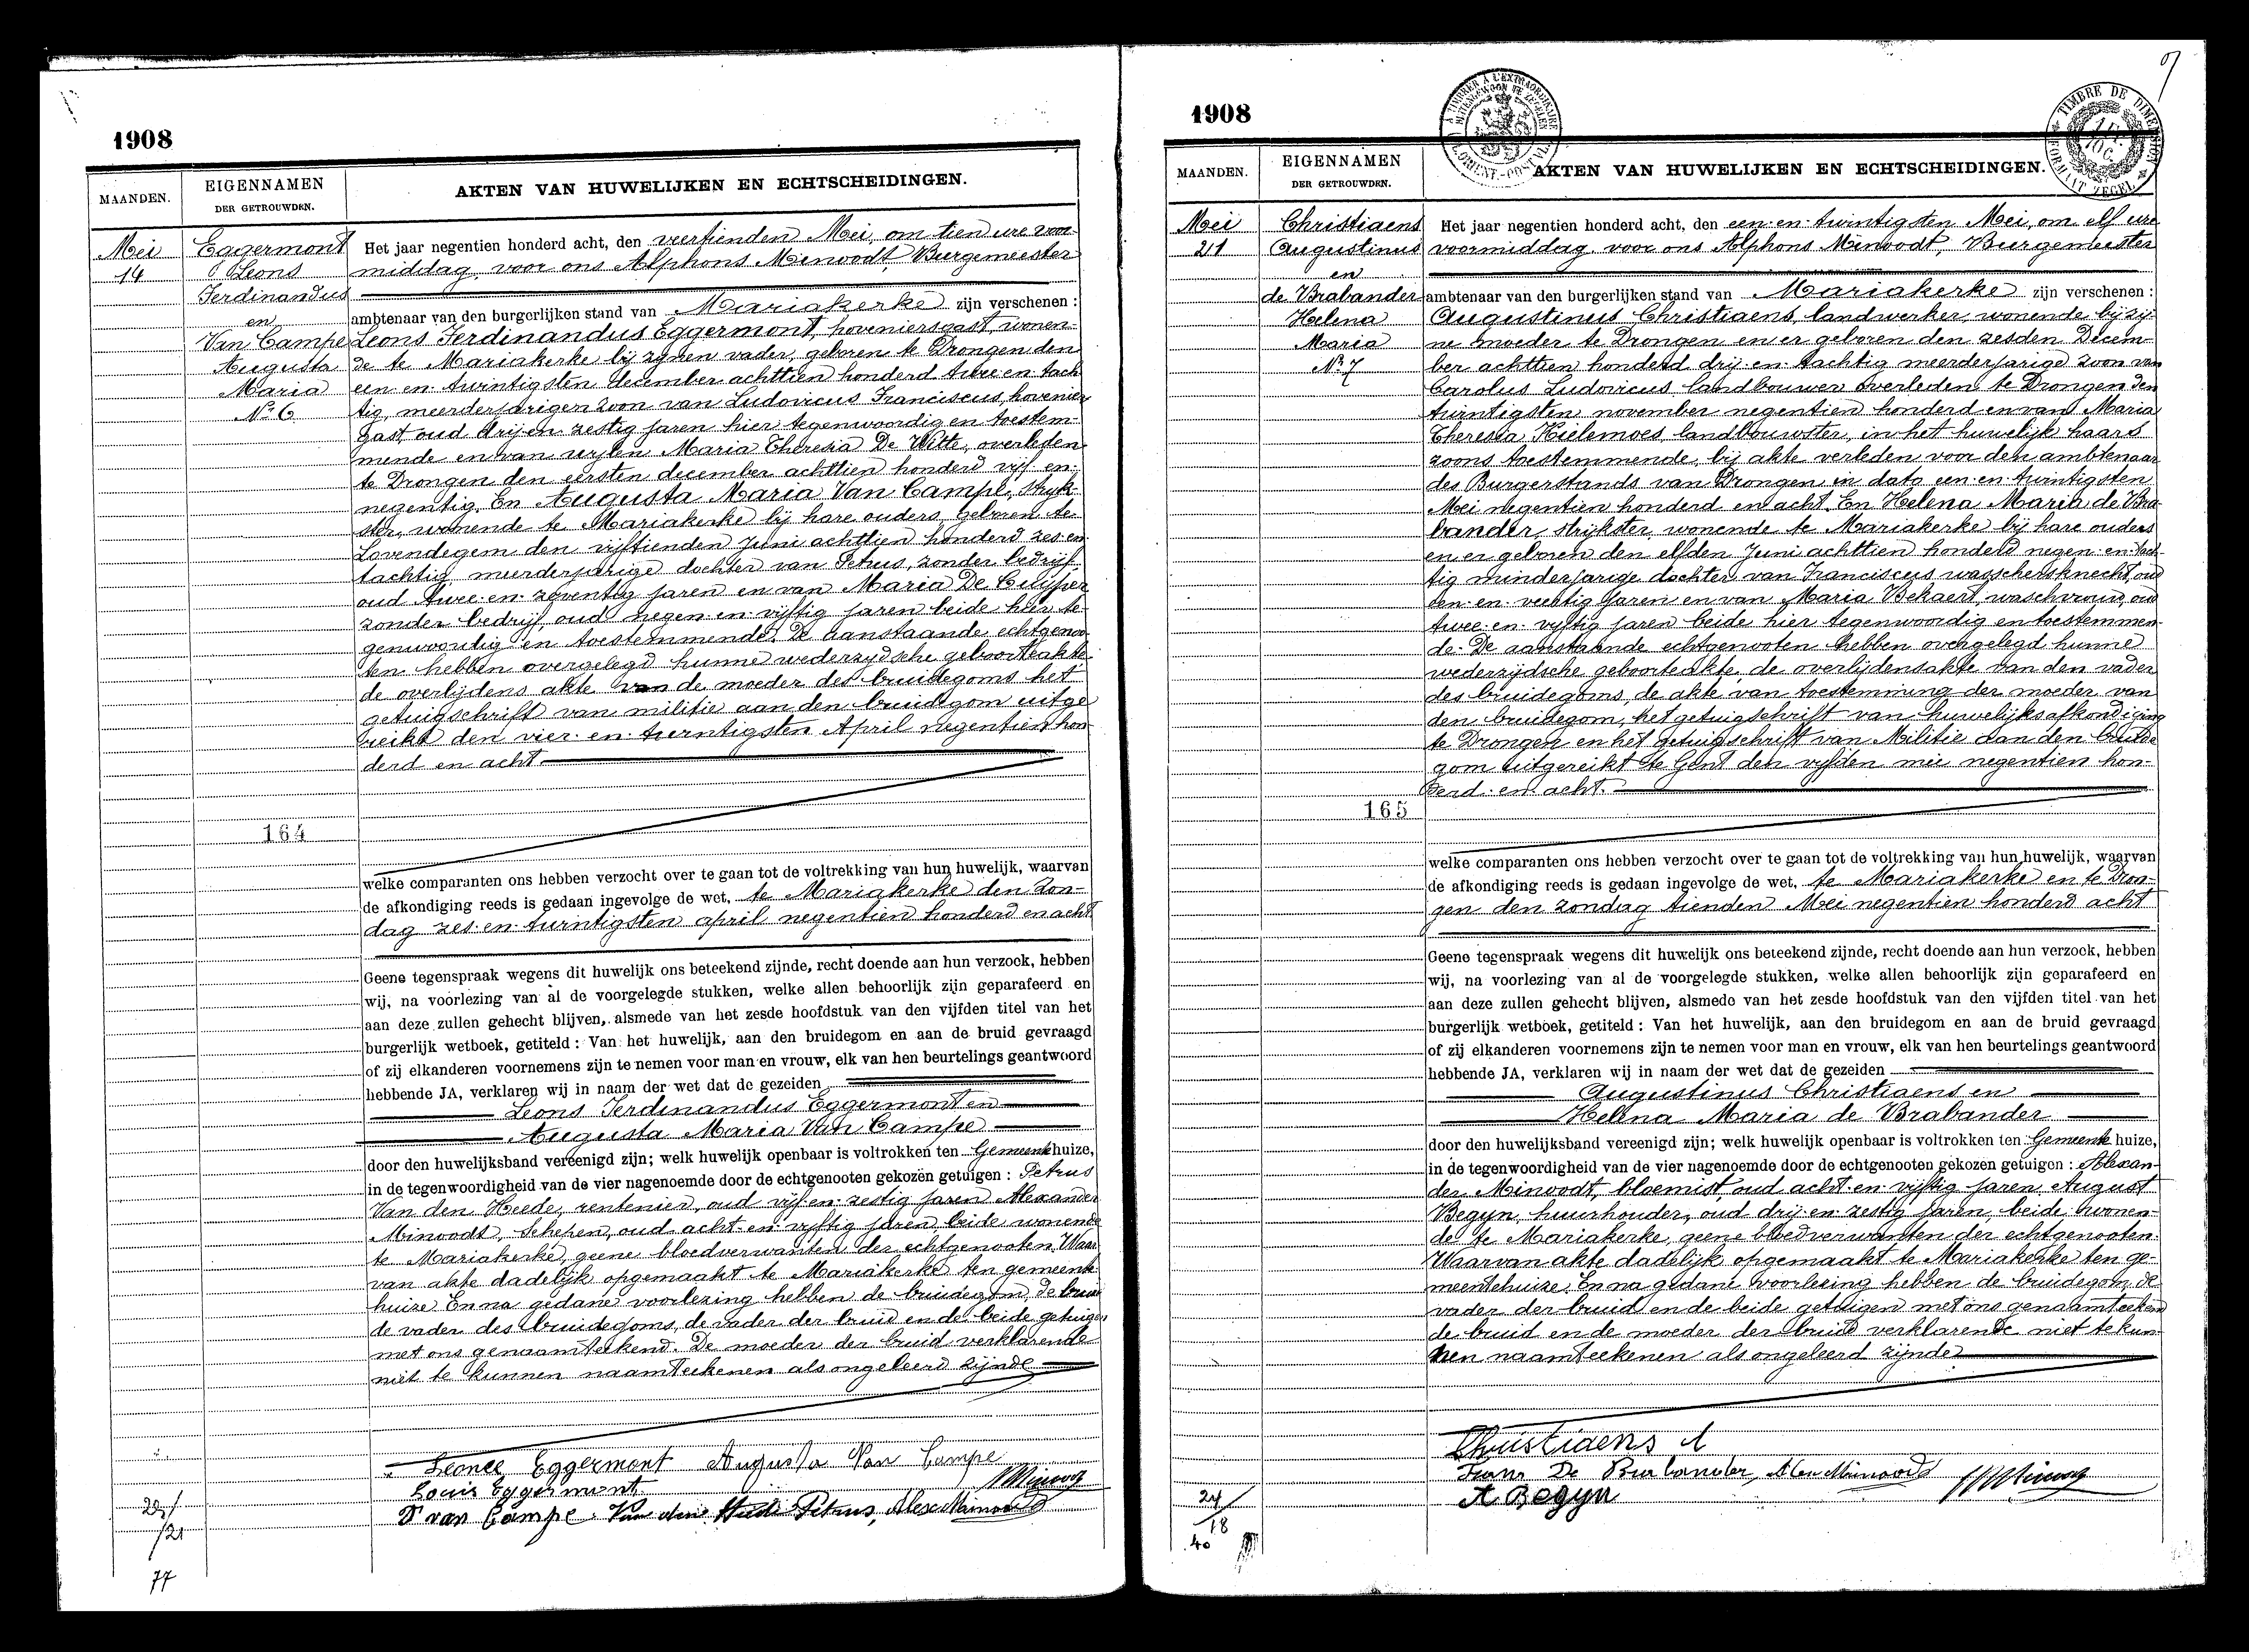 1908
MAANDEN.
EIGENNAMEN
DER GETROUWDEN.
AKTEN VAN HUWELIJKEN EN ECHTSCHEIDINGEN.
Mei
14
Eggermont
Leons
Ferdinandus
en
Van Campe
Augusta
Maria
No 6
164
Het jaar negentien honderd acht, den veertienden Mei, om tien ure voor-
middag, voor ons Alphons Minoodt, Burgemeester
ambtenaar van den burgerlijken stand van Mariakerke zijn verschenen :
Leons Ferdinandus Eggermont, hoveniersgast, wonen-
de te Mariakerke bij zynen vader, geboren te Drongen den
een en twintigsten december achttien honderd twee en tach
tig, meerderjarigen zoon van Ludovicus Franciscus, hovenier
gast, oud drij en zestig jaren hier tegenwoordig en toestem-
mende en van wylen Maria Theresia De Witte, overleden
te Drongen den eersten december achttien honderd vijf en
negentig. En Augusta Maria Van Campe, stryk-
ster, wonende te Mariakerke bij hare ouders, geboren te
Lovendegem den vijftienden Juni achttien honderd zes en
tachtig, meerderjarige dochter van Petrus, zonder bedrijf,
oud twee en zeventig jaren en van Maria De Cuijper
zonder bedrijf, oud negen en vijftig jaren beide hier te-
genwoordig en toestemmende. De aanstaande echtgenoo
ten hebben overgelegd hunne wederzydsche geboorteakte
de overlijdens akte van de moeder des bruidegoms het
getuigschrift van militie aan den bruidegom uitge
reikt den vier en twintigsten April negentien hon-
derd en acht
welke comparanten ons hebben verzocht over te gaan tot de voltrekking van hun huwelijk, waarvan
de afkondiging reeds is gedaan ingevolge de wet, te Mariakerke den Zon-
dag zes en twintigsten april negentien honderd en acht
Geene tegenspraak wegens dit huwelijk ons beteekend zijnde, recht doende aan hun verzoek, hebben
wij, na voorlezing van al de voorgelegde stukken, welke allen behoorlijk zijn geparafeerd en
aan deze zullen gehecht blijven, alsmede van het zesde hoofdstuk van den vijfden titel van het
burgerlijk wetboek, getiteld : Van het huwelijk, aan den bruidegom en aan de bruid gevraagd
of zij elkanderen voornemens zijn te nemen voor man en vrouw, elk van hen beurtelings geantwoord
hebbende JA, verklaren wij in naam der wet dat de gezeiden
Leons Ferdinandus Eggermont en
Augusta Maria Van Campe
door den huwelijksband vereenigd zijn; welk huwelijk openbaar is voltrokken ten Gemeentehuize,
in de tegenwoordigheid van de vier nagenoemde door de echtgenooten gekozen getuigen : Petrus
Van den Heede, rentenier, oud vijf en zestig jaren Alexander
Minoodt, Schepen, oud acht en vyftig jaren, beide wonende
te Mariakerke, geene bloedverwanten der echtgenooten. Waar
van akte dadelijk opgemaakt te Mariakerke ten gemeente
huize En na gedane voorlezing hebben de bruidegom, de brui
de vader des bruidegoms, de vader der bruid en de beide getuigen
met ons genaamteekend. De moeder der bruid verklarende
niet te kunnen naamteekenen als ongeleerd zijnde
Leonce Eggermont Augusta Van Campe
Louis Eggermont
P van Campe Van den Heede Petrus, Alex Minoodt
77
1908
MAANDEN.
EIGENNAMEN
DER GETROUWDEN.
AKTEN VAN HUWELIJKEN EN ECHTSCHEIDINGEN.
TIMBRE DE DIMENSION
FORMAAT ZEGEL
Mei
21
Christiaens
Augustinus
en
de Brabander
Helena
Maria
No 7
165
Het jaar negentien honderd acht, den een en twintigsten Mei, om elf ure
voormiddag voor ons Alphons Minoodt, Burgemeester
ambtenaar van den burgerlijken stand van Mariakerke zijn verschenen :
Augustinus Christiaens, landwerker, wonende bij zij-
ne moeder te Drongen en er geboren den zesden Decem-
ber achttien honderd drij en tachtig meerderjarige zoon van
Carolus Ludovicus landbouwer overleden te Drongen den
twintigsten november negentien honderd en van Maria
Theresia Kielemoes landbouwster, in het huwelijk haars
zoons toestemmende, bij akte verleden voor den ambtenaar
des Burgerstands van Drongen in dato een en twintigsten
Mei negentien honderd en acht. En Helena Maria de Bra-
bander, strijkster, wonende te Mariakerke bij hare ouders
en er geboren den elfden Juni achttien honderd negen en tach-
tig minderjarige dochter van Franciscus wasschersknecht, oud
een en veertig jaren en van Maria Bekaert, waschvrouw, oud
twee en vyftig jaren beide hier tegenwoordig en toestemmen-
de. De aanstaande echtgenooten hebben overgelegd hunne
wederzijdsche geboorteakte, de overlijdensakte van den vader
des bruidegoms, de akte van toestemming der moeder van
den bruidegom, het getuigschrift van huwelijksafkondiging
te Drongen en het getuigschrift van Militie aan den bruide
gom uitgereikt te Gent den vyfden mei negentien hon-
derd en acht.
welke comparanten ons hebben verzocht over te gaan tot de voltrekking van hun huwelijk, waarvan
de afkondiging reeds is gedaan ingevolge de wet, te Mariakerke en te Dron-
gen den zondag tienden Mei negentien honderd acht
Geene tegenspraak wegens dit huwelijk ons beteekend zijnde, recht doende aan hun verzoek, hebben
wij, na voorlezing van al de voorgelegde stukken, welke allen behoorlijk zijn geparafeerd en
aan deze zullen gehecht blijven, alsmede van het zesde hoofdstuk van den vijfden titel van het
burgerlijk wetboek, getiteld : Van het huwelijk, aan den bruidegom en aan de bruid gevraagd
of zij elkanderen voornemens zijn te nemen voor man en vrouw, elk van hen beurtelings geantwoord
hebbende JA, verklaren wij in naam der wet dat de gezeiden
Augustinus Christiaens en
Helena Maria de Brabander
door den huwelijksband vereenigd zijn; welk huwelijk openbaar is voltrokken ten Gemeentehuize,
in de tegenwoordigheid van de vier nagenoemde door de echtgenooten gekozen getuigen : Alexan-
der Minoodt, bloemist, oud acht en vijftig jaren, August
Begyn, huurhouder, oud drij en zestig jaren, beide wonen-
de te Mariakerke, geene bloedverwanten der echtgenooten.
Waarvan akte dadelijk opgemaakt te Mariakerke ten ge-
meentehuize. En na gedane voorlezing hebben de bruidegom, de
vader der bruid en de beide getuigen met ons genaamteekend
de bruid en de moeder der bruid verklarende niet te kun-
nen naamteekenen als ongeleerd zijnde
Christiaens A
Frans De Brabander, Alex Minoodt
A Begyn
24
18
40